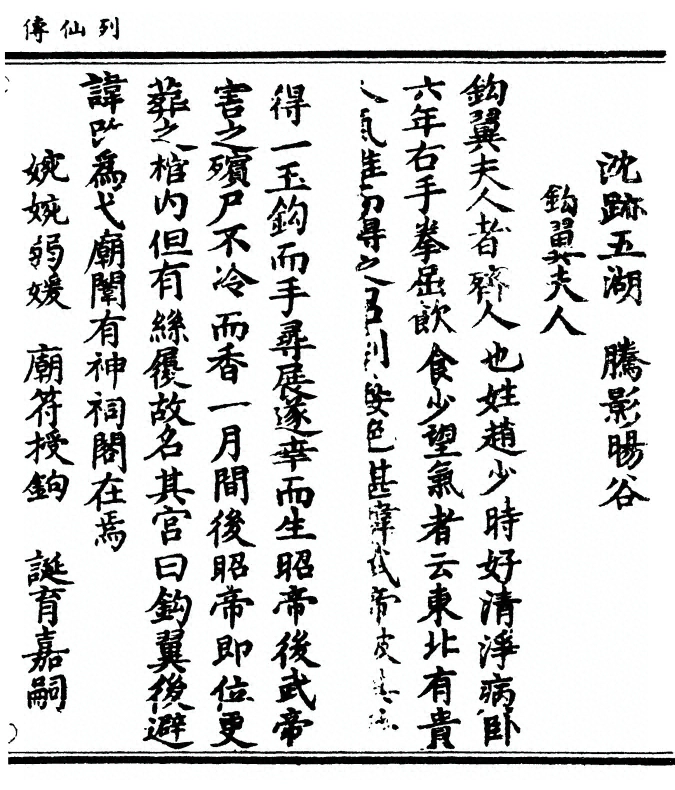 列仙傳
沈跡五湖　騰影暘谷
鈎翼夫人
鈎翼夫人者齊人也姓趙少時好清淨病卧
六年右手拳屈飲食少望氣者云東北有貴
人氣推而得之召到姿色甚偉武帝披其
得一玉鈎而手尋展遂幸而生昭帝後武帝
害之殯尸不冷而香一月間後昭帝即位更
葬之棺内但有絲履故名其宫曰鈎翼後避
諱改爲弋廟闈有神祠閣在焉
婉婉弱媛　廟符授鈎　誕育嘉嗣